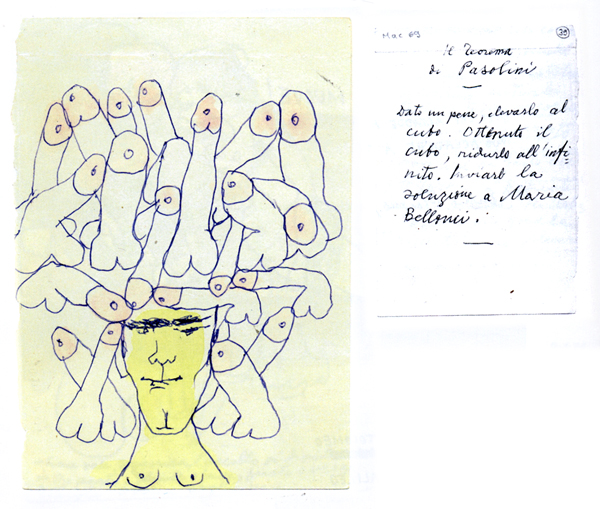 Mac 69
39
il Teorema
di Pasolini
Dato un pene, elevarlo al
cubo. Ottenuto il
cubo, ridurlo all'infi=
nito. Inviare la
soluzione a Maria
Bellonci.